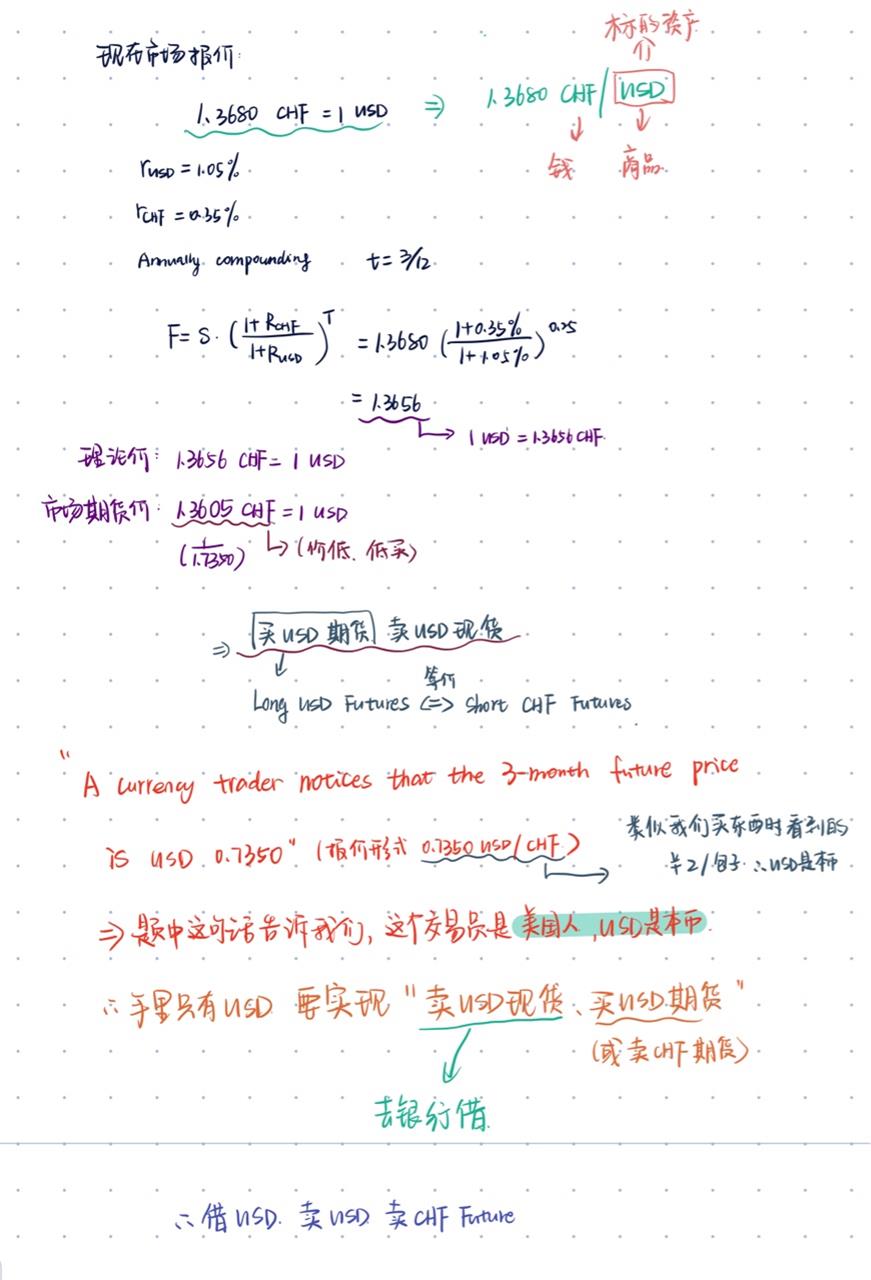 标的资产
价
现在市场报价:
1.3680 CHF = 1 USD ⇒ 1.3680 CHF/USD
钱 商品
rUSD = 1.05%
rCHF = 0.35%
Annually compounding t = 3/12
F = S · ((1+RCHF)/(1+RUSD))^T = 1.3680 ((1+0.35%)/(1+1.05%))^0.25
= 1.3656
1 USD = 1.3656 CHF
理论价: 1.3656 CHF = 1 USD
市场期货价: 1.3605 CHF = 1 USD
(1/1.7350) (价低、低买)
⇒ 买USD期货 卖USD现货
等价
Long USD Futures <=> Short CHF Futures
"A currency trader notices that the 3-month future price
is USD 0.7350" (报价形式 0.7350 USD/CHF)
类似我们买东西时看到的
¥2/包子 ∴USD是本币
⇒ 题中这句话告诉我们, 这个交易员是美国人, USD是本币.
∴ 手里只有USD 要实现 "卖USD现货、买USD期货"
(或卖CHF期货)
去银行借
∴ 借USD. 卖USD 卖CHF Future